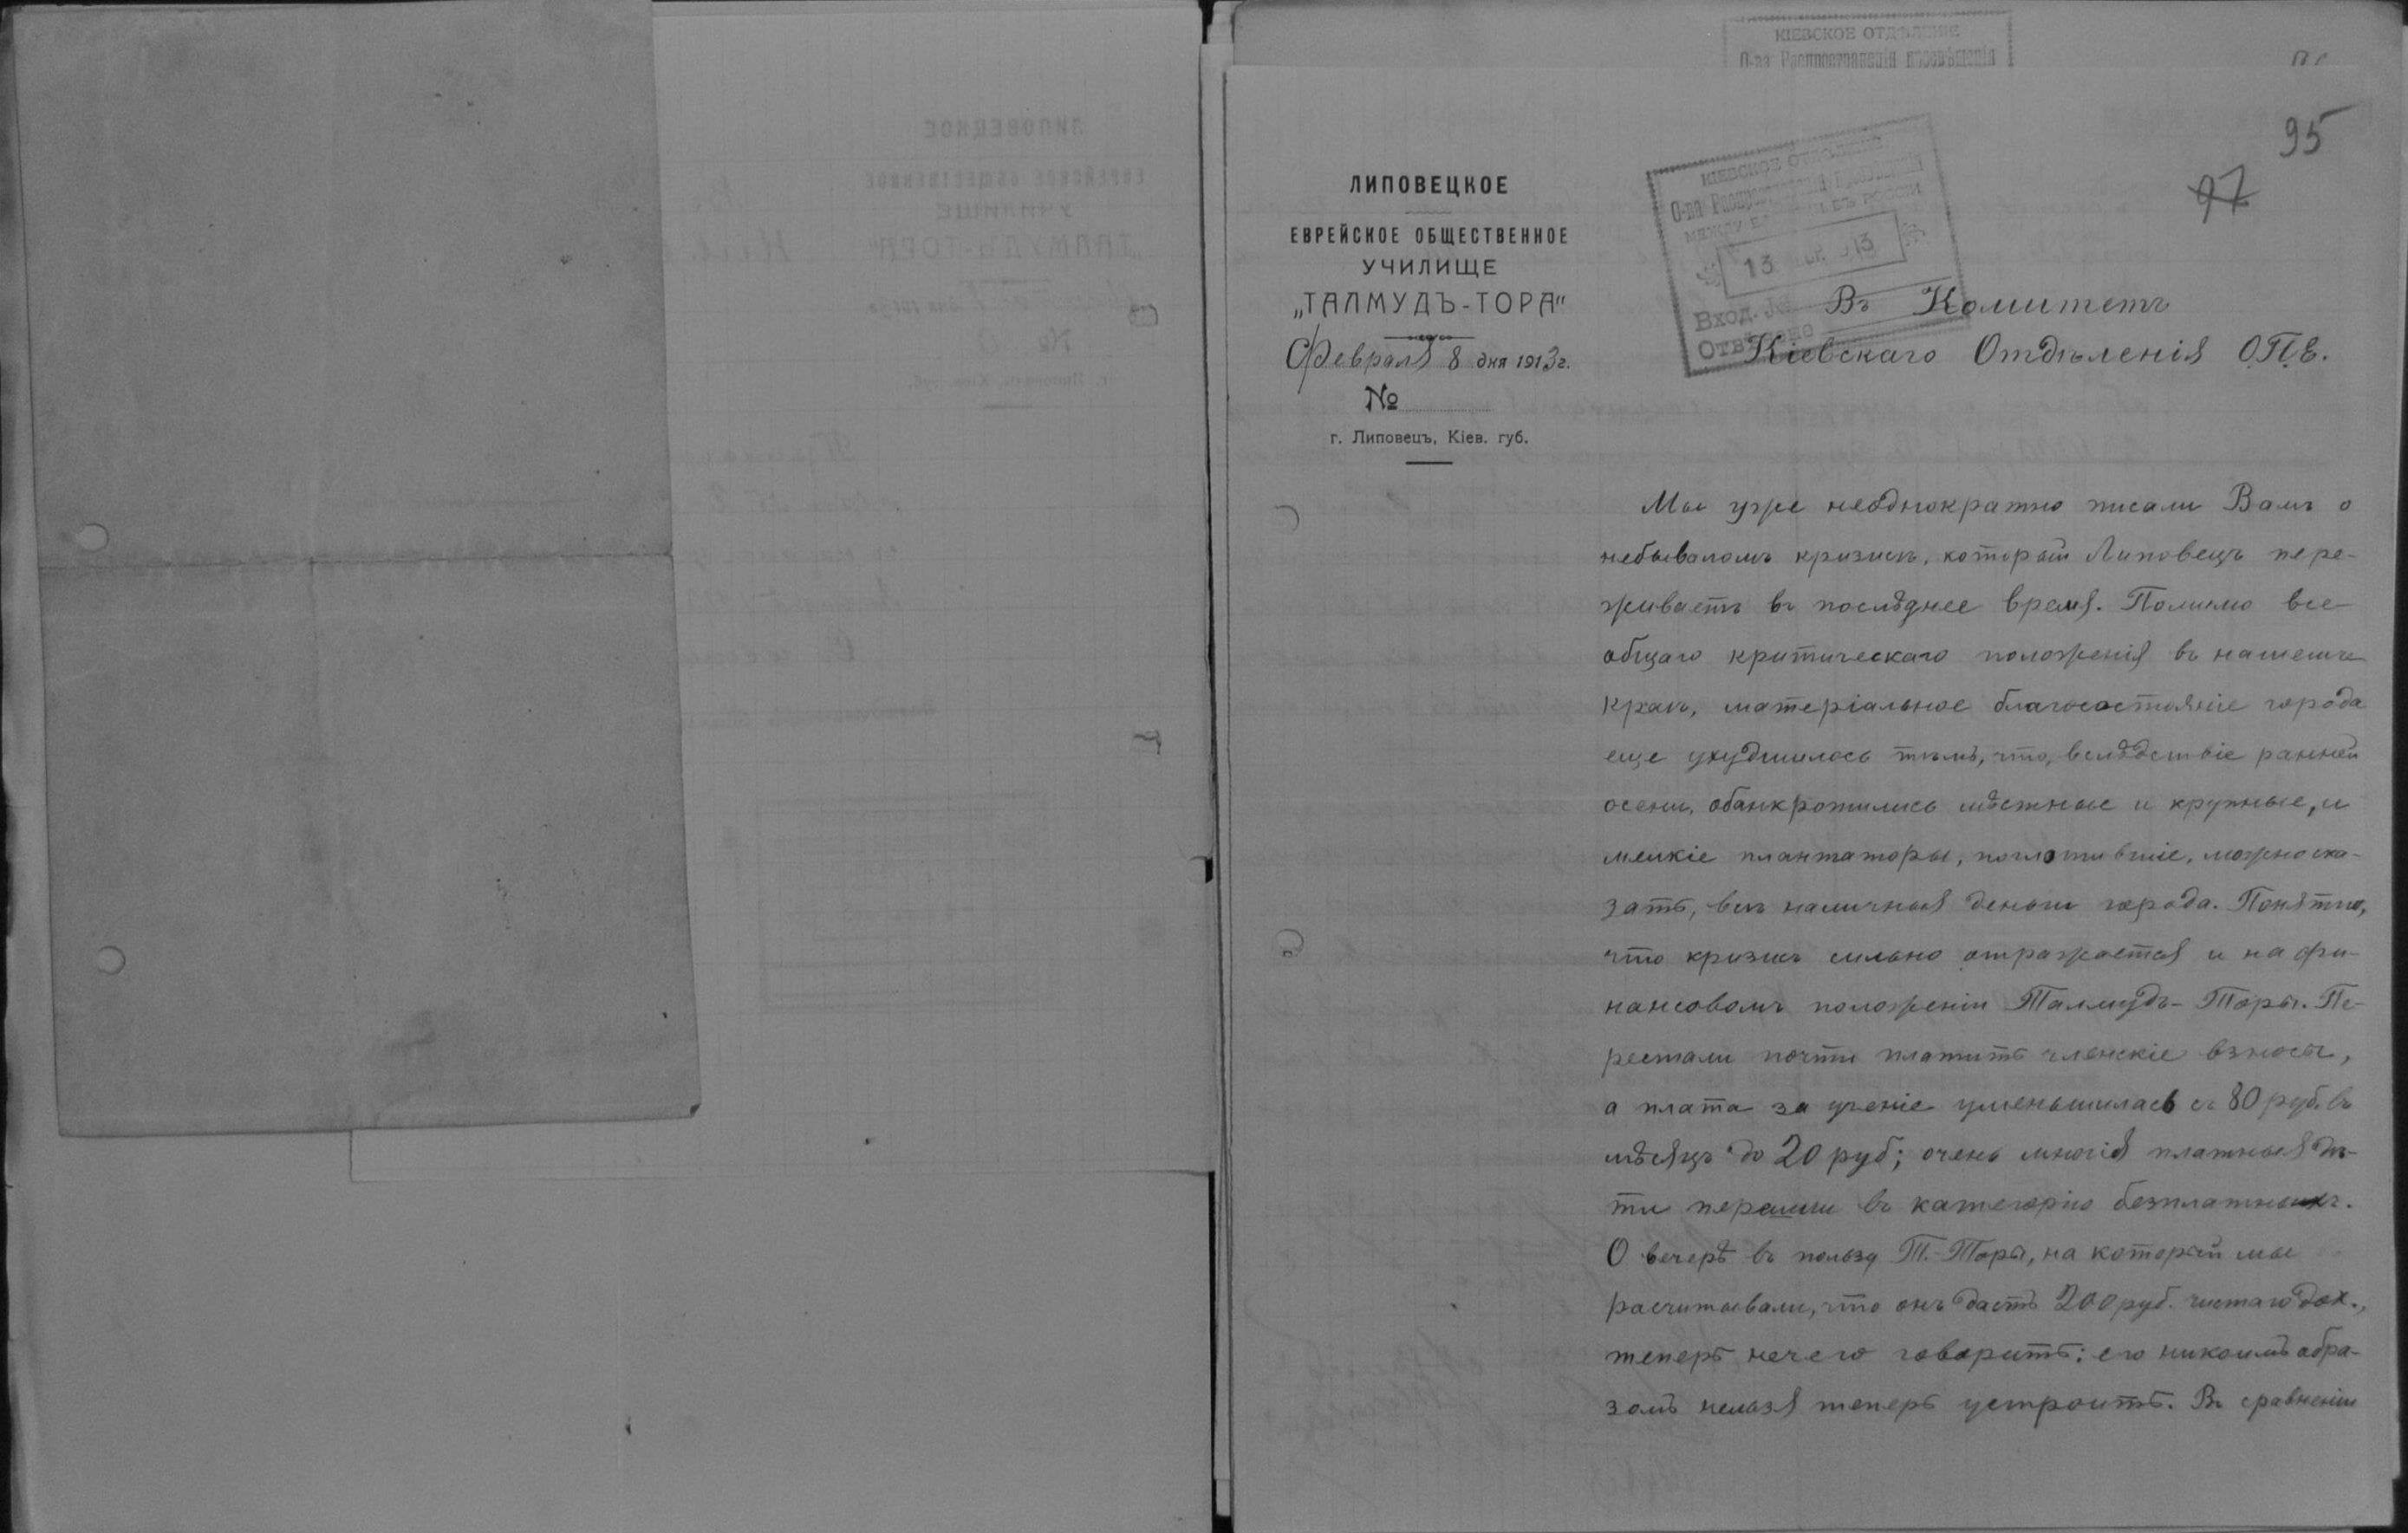 КІЕВСКОЕ ОТДѢЛЕНІЕ
О-ва Распространенія просвѣщенія
95
97
ЛИПОВЕЦКОЕ
ЕВРЕЙСКОЕ ОБЩЕСТВЕННОЕ
УЧИЛИЩЕ
„ТАЛМУДЪ-ТОРА“
Февраля 8 дня 1913 г.
№
г. Липовецъ, Кіев. губ.
КІЕВСКОЕ ОТДѢЛЕНІЕ
О-ва Распространенія просвѣщенія
МЕЖДУ ЕВРЕЯМИ ВЪ РОССІИ
13 913
Вход. №
Отвѣчено
Въ Комитетъ
Кіевскаго Отдѣленія О.П.Е.
Мы уже неоднократно писали Вамъ о
небываломъ кризисѣ, который Липовецъ пере-
живаетъ въ послѣднее время. Помимо все-
общаго критическаго положенія въ нашемъ
краѣ, матеріальное благосостояніе города
еще ухудшилось тѣмъ, что, вслѣдствіе ранней
осени, обанкротились мѣстные и крупные, и
мелкіе плантаторы, поглотившіе, можно ска-
зать, всѣ наличныя деньги города. Понятно,
что кризисъ сильно отражается и на фи-
нансовомъ положеніи Талмудъ-Торы. Пе-
рестали почти платить членскіе взносы,
а плата за ученіе уменьшилась съ 80 руб. въ
мѣсяцъ до 20 руб; очень многія платныя дѣ-
ти перешли въ категорію безплатныхъ.
О вечерѣ въ пользу Т.-Торы, на который мы
расчитывали, что онъ дастъ 200 руб. чистаго дох.,
теперь нечего говорить: его никоимъ обра-
зомъ нельзя теперь устроить. Въ сравненіи